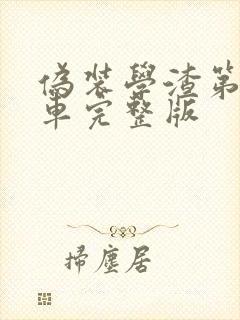 偽裝學渣第
車完整版
掃塵居